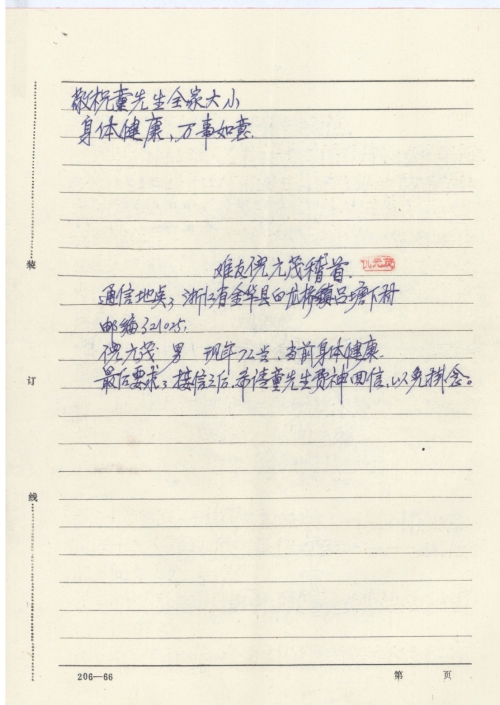 敬祝童先生全家大小
身体健康,万事如意.
难友倪元茂稽首.
通信地点:浙江省金华县白龙桥镇吕塘下村
邮编321025.
倪元茂 男 现年72岁,当前身体健康.
最后要求:接信之后,希请童先生费神回信,以免掛念。
装
订
线
206—66 第 页